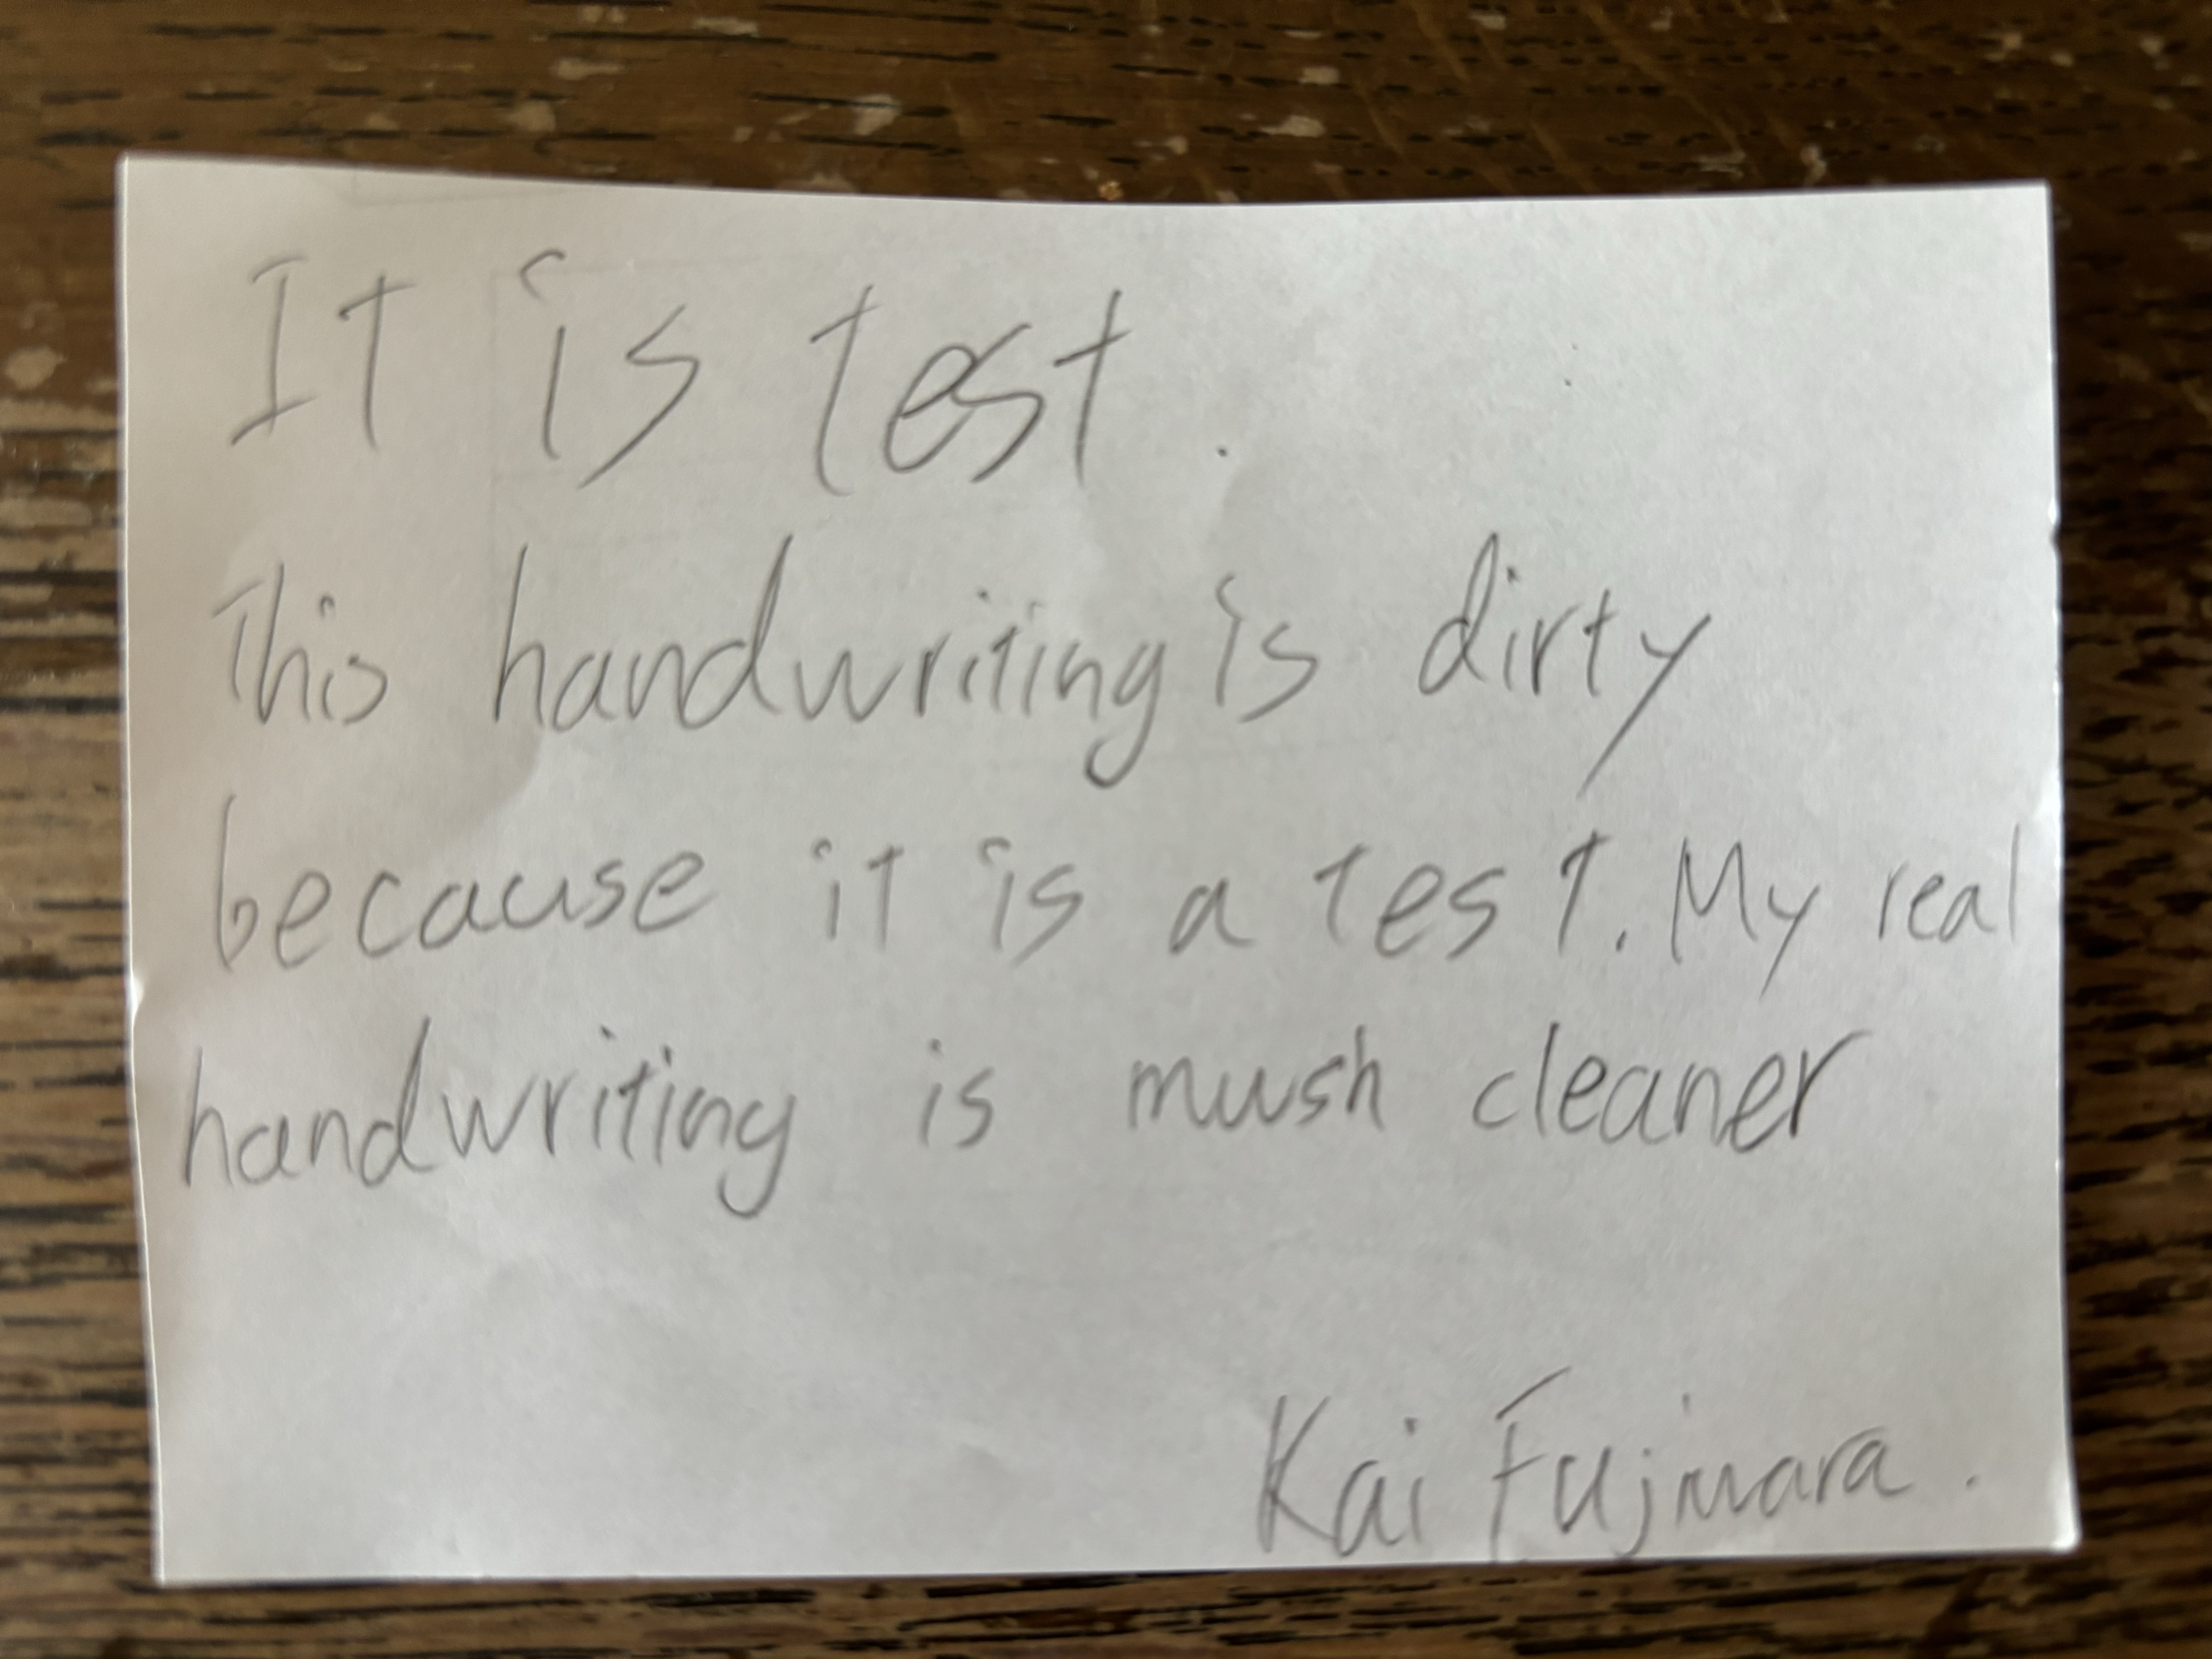 It is test.
This handwriting is dirty
because it is a test. My real
handwriting is mush cleaner
Kai Fujiwara.